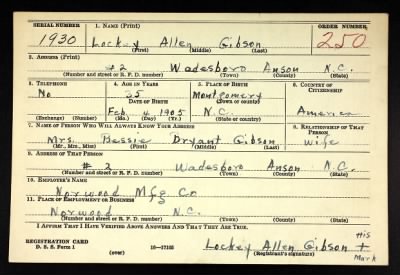 SERIAL NUMBER 1. NAME (Print) ORDER NUMBER
1930 Lockey Allen Gibson 250
(First) (Middle) (Last)
2. ADDRESS (Print)
#2 Wadesboro Anson N.C.
(Number and street or R. F. D. number) (Town) (County) (State)
3. TELEPHONE 4. AGE IN YEARS 5. PLACE OF BIRTH 6. COUNTRY OF CITIZENSHIP
No 35 Montgomery
DATE OF BIRTH (Town or county)
Feb 4 1905 N.C. America
(Exchange) (Number) (Mo.) (Day) (Yr.) (State or country)
7. NAME OF PERSON WHO WILL ALWAYS KNOW YOUR ADDRESS 8. RELATIONSHIP OF THAT PERSON
Mrs. Bessie Bryant Gibson wife
(Mr., Mrs., Miss) (First) (Middle) (Last)
9. ADDRESS OF THAT PERSON
#2 Wadesboro Anson N.C.
(Number and street or R. F. D. number) (Town) (County) (State)
10. EMPLOYER'S NAME
Norwood Mfg Co
11. PLACE OF EMPLOYMENT OR BUSINESS
Norwood N.C.
(Number and street or R. F. D. number) (Town) (County) (State)
I AFFIRM THAT I HAVE VERIFIED ABOVE ANSWERS AND THAT THEY ARE TRUE.
His
REGISTRATION CARD Lockey Allen Gibson +
D. S. S. Form 1 (over) 16—17105 (Registrant's signature) Mark